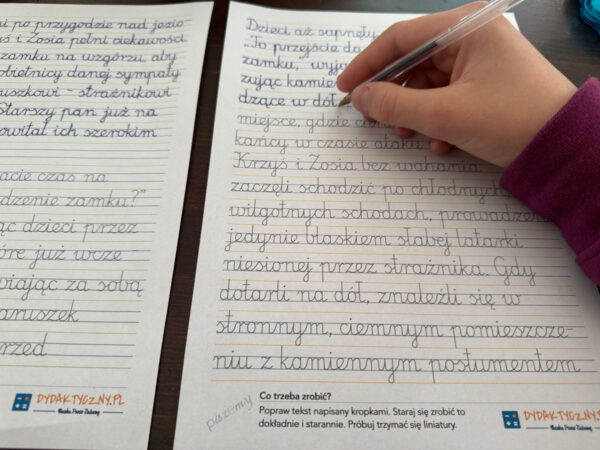 ni po przygodzie nad jezio-
uś i Zosia pełni ciekawości
zamku na wzgórzu, aby
obietnicy danej sympaty
uszkowi - strażnikowi
Starszy pan już na
owitał ich szerokim
acie czas na
dzenie zamku?"
ąc dzieci przez
óre już wcze
wiając za sobą
anuszek
rzed
DYDAKTYCZNY.PL
Nauka Przez Zabawę
Dzieci aż sapnęły
„To przejście do
zamku," wyja
zując kamien
dzące w dół,
miejsce, gdzie
kańcy w czasie ataku
Krzyś i Zosia bez wahania
zaczęli schodzić po chłodnych,
wilgotnych schodach, prowadzen
jedynie blaskiem słabej latarki
niesionej przez strażnika. Gdy
dotarli na dół, znaleźli się w
stronnym, ciemnym pomieszcze-
niu z kamiennym postumentem
piszemy
Co trzeba zrobić?
Popraw tekst napisany kropkami. Staraj się zrobić to
dokładnie i starannie. Próbuj trzymać się liniatury.
DYDAKTYCZNY.
Nauka Przez Zabawę